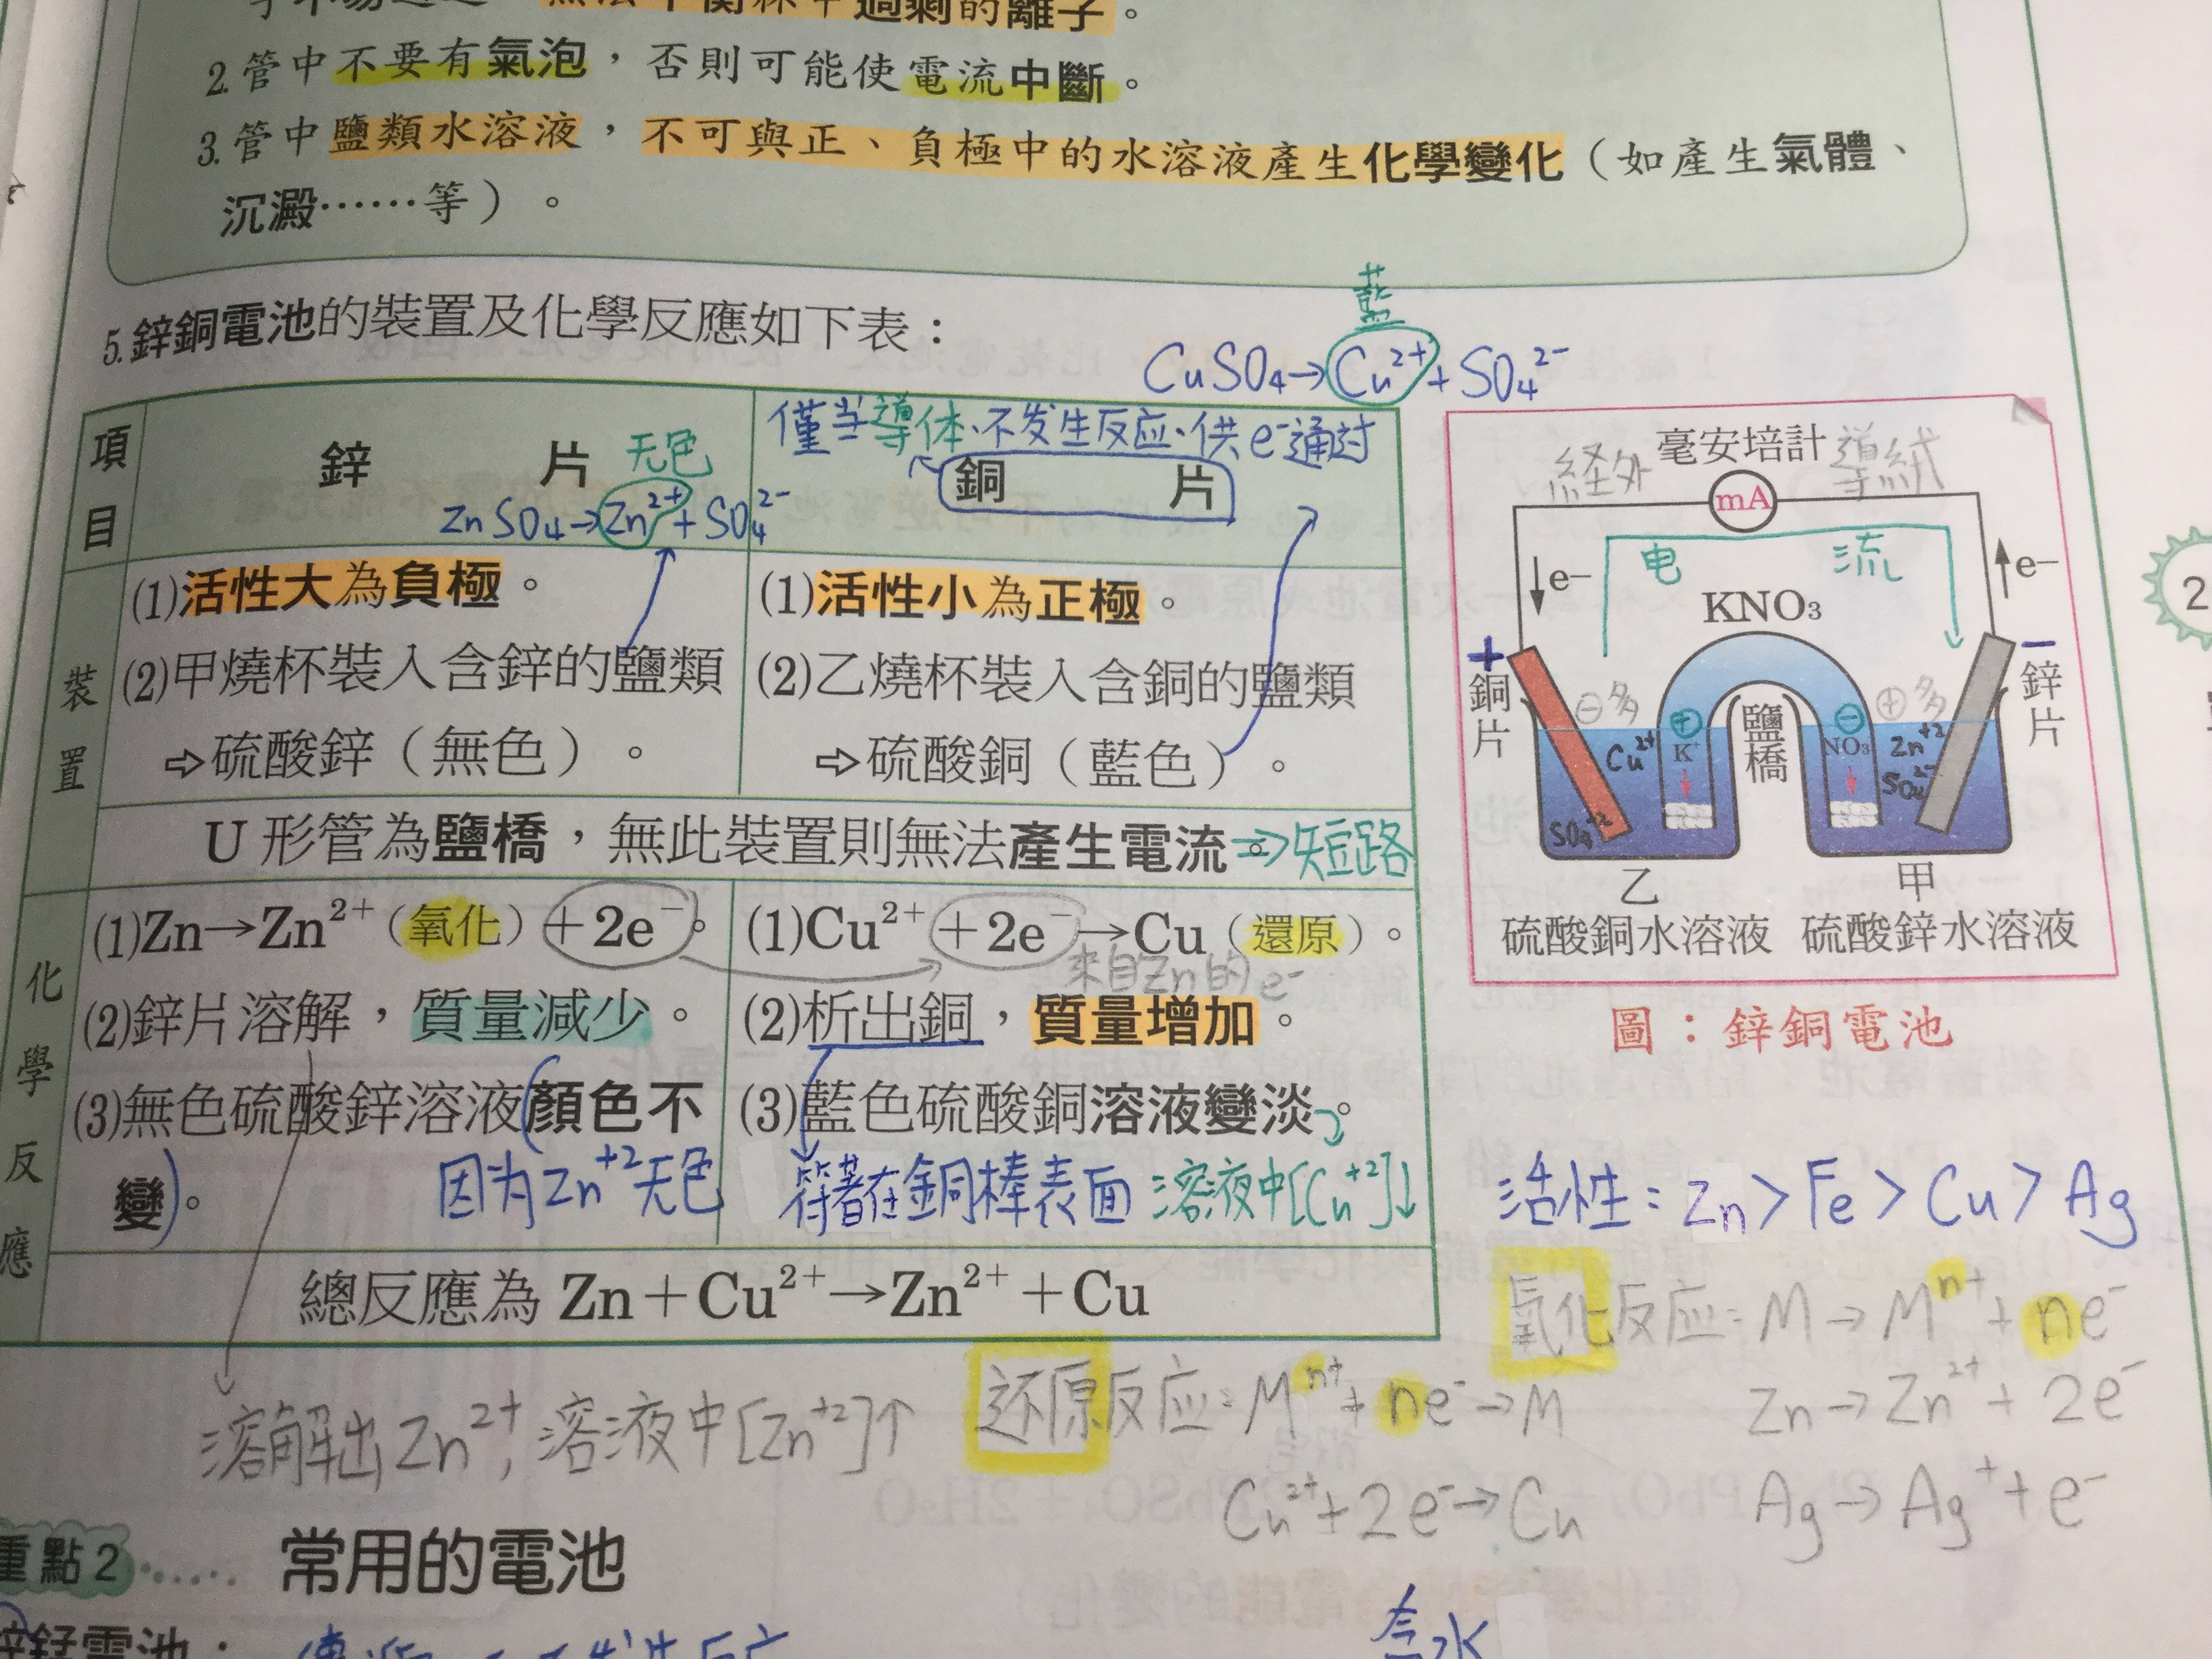 過剩的離子。
2.管中不要有氣泡，否則可能使電流中斷。
3.管中鹽類水溶液，不可與正、負極中的水溶液產生化學變化（如產生氣體、
沉澱……等）。
5.鋅銅電池的裝置及化學反應如下表：
藍
CuSO₄→Cu²⁺+SO₄²⁻
項目
鋅 片
无色
ZnSO₄→Zn²⁺+SO₄²⁻
僅当導体、不发生反应、供e⁻通过
銅 片
裝置
(1)活性大為負極。
(2)甲燒杯裝入含鋅的鹽類
⇨硫酸鋅（無色）。
(1)活性小為正極。
(2)乙燒杯裝入含銅的鹽類
⇨硫酸銅（藍色）。
U 形管為鹽橋，無此裝置則無法產生電流。⇒短路
化學反應
(1)Zn→Zn²⁺（氧化）+2e⁻。
(2)鋅片溶解，質量減少。
(3)無色硫酸鋅溶液顏色不
變。
因为Zn⁺²无色
(1)Cu²⁺+2e⁻→Cu（還原）。
来自Zn的e⁻
(2)析出銅，質量增加。
(3)藍色硫酸銅溶液變淡。
符著在銅棒表面
溶液中[Cu⁺²]↓
總反應為 Zn＋Cu²⁺→Zn²⁺＋Cu
経外
毫安培計
導絨
mA
电 流
e−
e−
KNO₃
+
銅片
−
鋅片
⊖多
⊕多
Cu²⁺
⊕
K⁺
鹽橋
⊖
NO₃⁻
Zn⁺²
SO₄²⁻
SO₄⁻²
乙
硫酸銅水溶液
甲
硫酸鋅水溶液
圖：鋅銅電池
活性：Zn>Fe>Cu>Ag
氧化反应：M→Mⁿ⁺+ne⁻
Zn→Zn²⁺+2e⁻
Ag→Ag⁺+e⁻
还原反应：Mⁿ⁺+ne⁻→M
Cu²⁺+2e⁻→Cu
溶解出Zn²⁺，溶液中[Zn⁺²]↑
重點2…… 常用的電池
含水
2